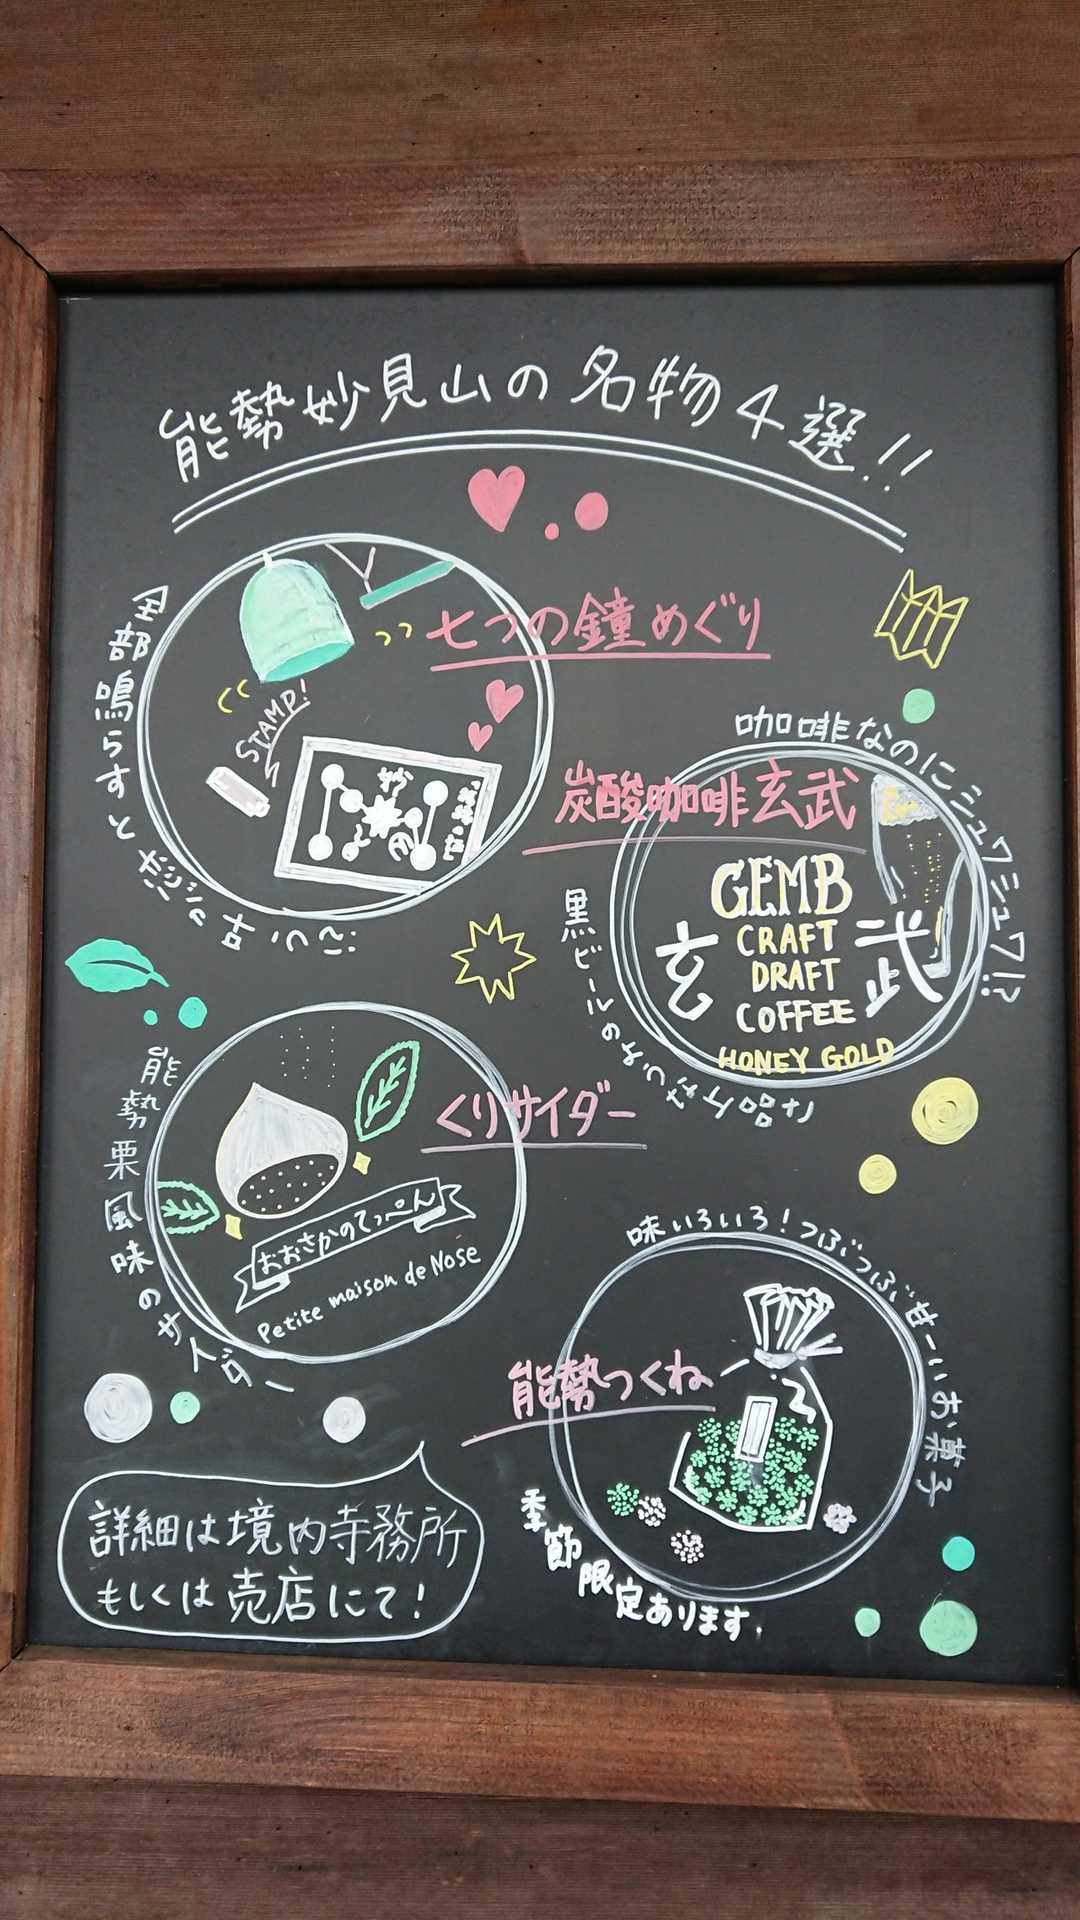 能勢妙見山の名物4選!!
七つの鐘めぐり
全部鳴らすと
STAMP!
妙
炭酸咖啡玄武
咖啡なのにシュワシュワ!?
GEMB
CRAFT
DRAFT
COFFEE
玄武
HONEY GOLD
黒ビールの
くりサイダー
能勢栗風味のサイダー
おおさかのてっぺん
Petite maison de Nose
能勢つくね
味いろいろ!つぶつぶ甘ーいお菓子
季節限定あります.
詳細は境内寺務所
もしくは売店にて!